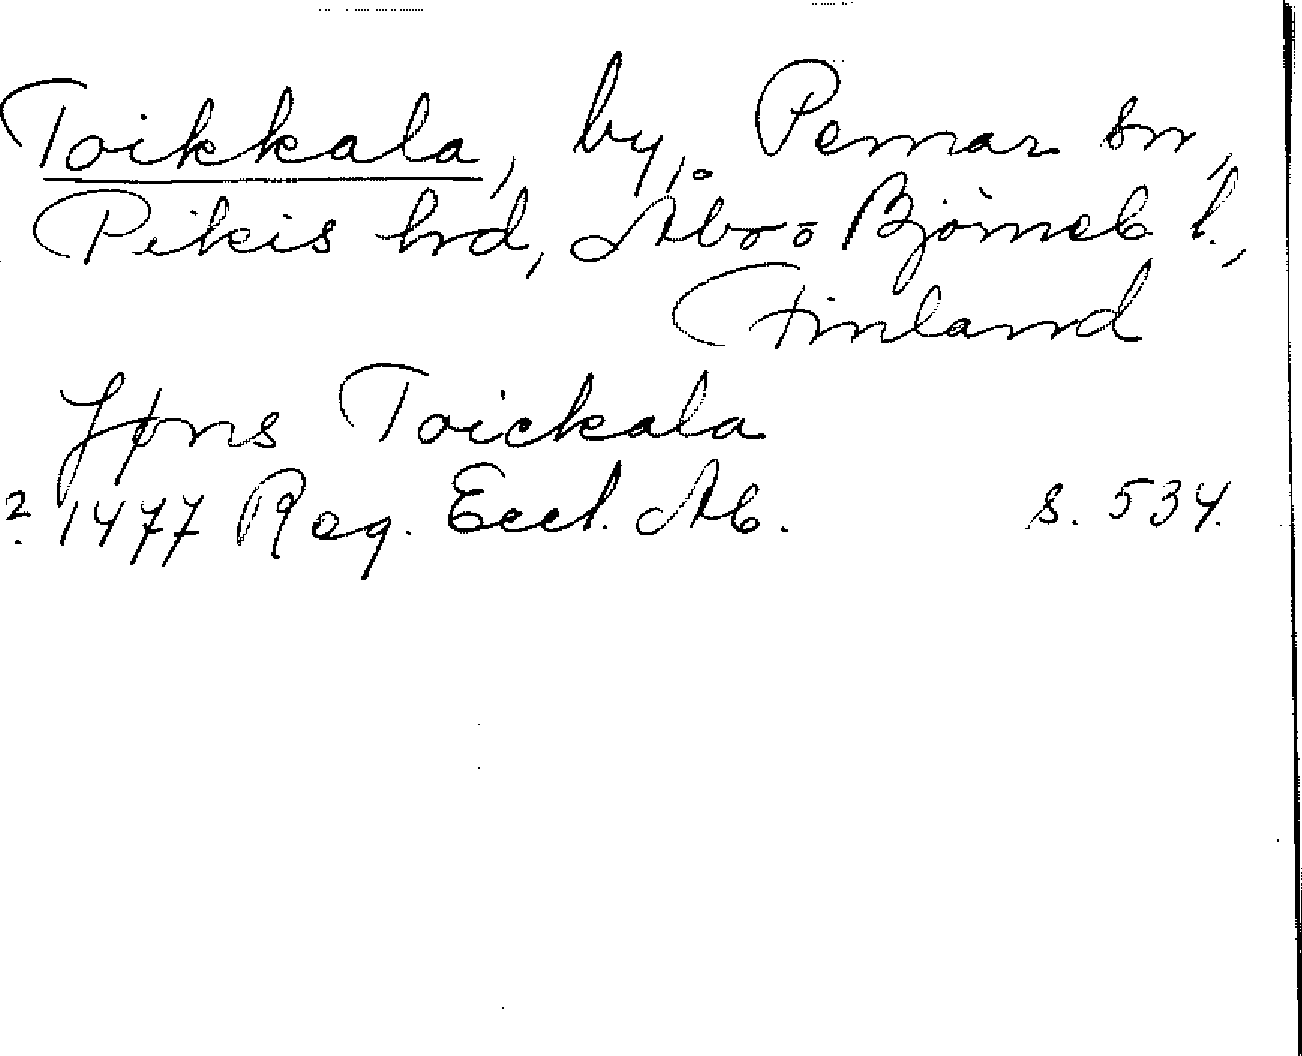 Toikkala, by, Pemar sn,
Pikis hrd, Åbo o Björneb l.,
Finland
Jöns Toickala
? 1477 Reg. Eccl. Ab. s. 534.